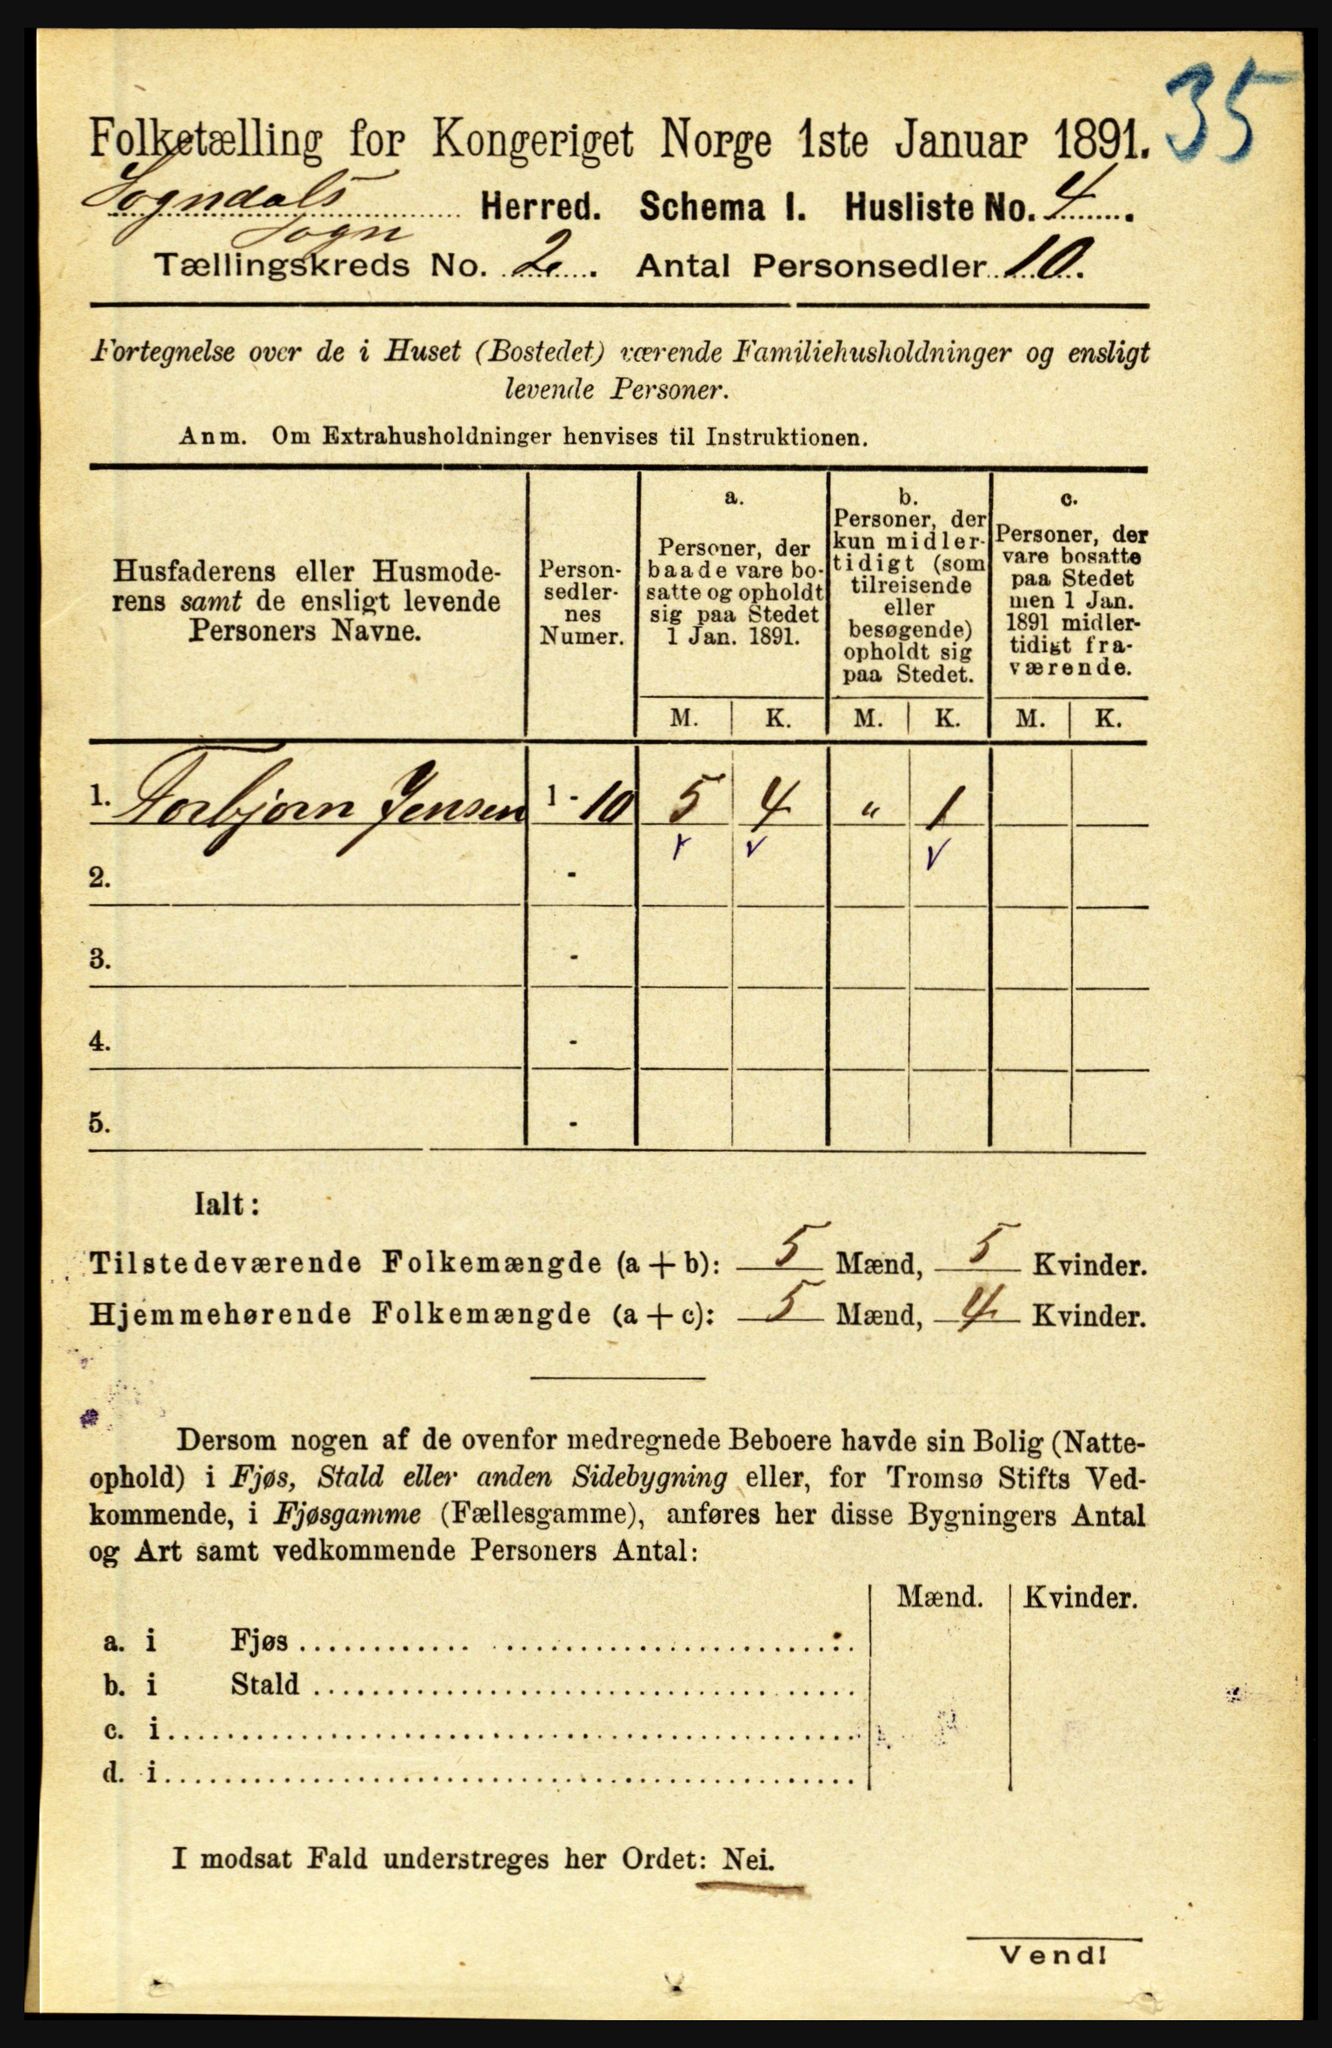 35
Folketælling for Kongeriget Norge 1ste Januar 1891.
Sogndals Herred. Schema I. Husliste No. 4.
Sogn
Tællingskreds No. 2. Antal Personsedler 10.
Fortegnelse over de i Huset (Bostedet) værende Familiehusholdninger og ensligt
levende Personer.
Anm. Om Extrahusholdninger henvises til Instruktionen.
Husfaderens eller Husmode-
rens samt de ensligt levende
Personers Navne.
Person-
sedler-
nes
Numer.
a.
Personer, der
baade vare bo-
satte og opholdt
sig paa Stedet
1 Jan. 1891.
b.
Personer, der
kun midler-
tidigt (som
tilreisende
eller
besøgende)
opholdt sig
paa Stedet.
c.
Personer, der
vare bosatte
paa Stedet
men 1 Jan.
1891 midler-
tidigt fra-
værende.
M. K. M. K. M. K.
1. Torbjørn Jensen 1 - 10 5 4 " 1
2. -
3. -
4. -
5. -
Ialt:
Tilstedeværende Folkemængde (a + b): 5 Mænd, 5 Kvinder.
Hjemmehørende Folkemængde (a + c): 5 Mænd, 4 Kvinder.
Dersom nogen af de ovenfor medregnede Beboere havde sin Bolig (Natte-
ophold) i Fjøs, Stald eller anden Sidebygning eller, for Tromsø Stifts Ved-
kommende, i Fjøsgamme (Fællesgamme), anføres her disse Bygningers Antal
og Art samt vedkommende Personers Antal:
Mænd. Kvinder.
a. i Fjøs
b. i Stald
c. i
d. i
I modsat Fald understreges her Ordet: Nei.
Vend!